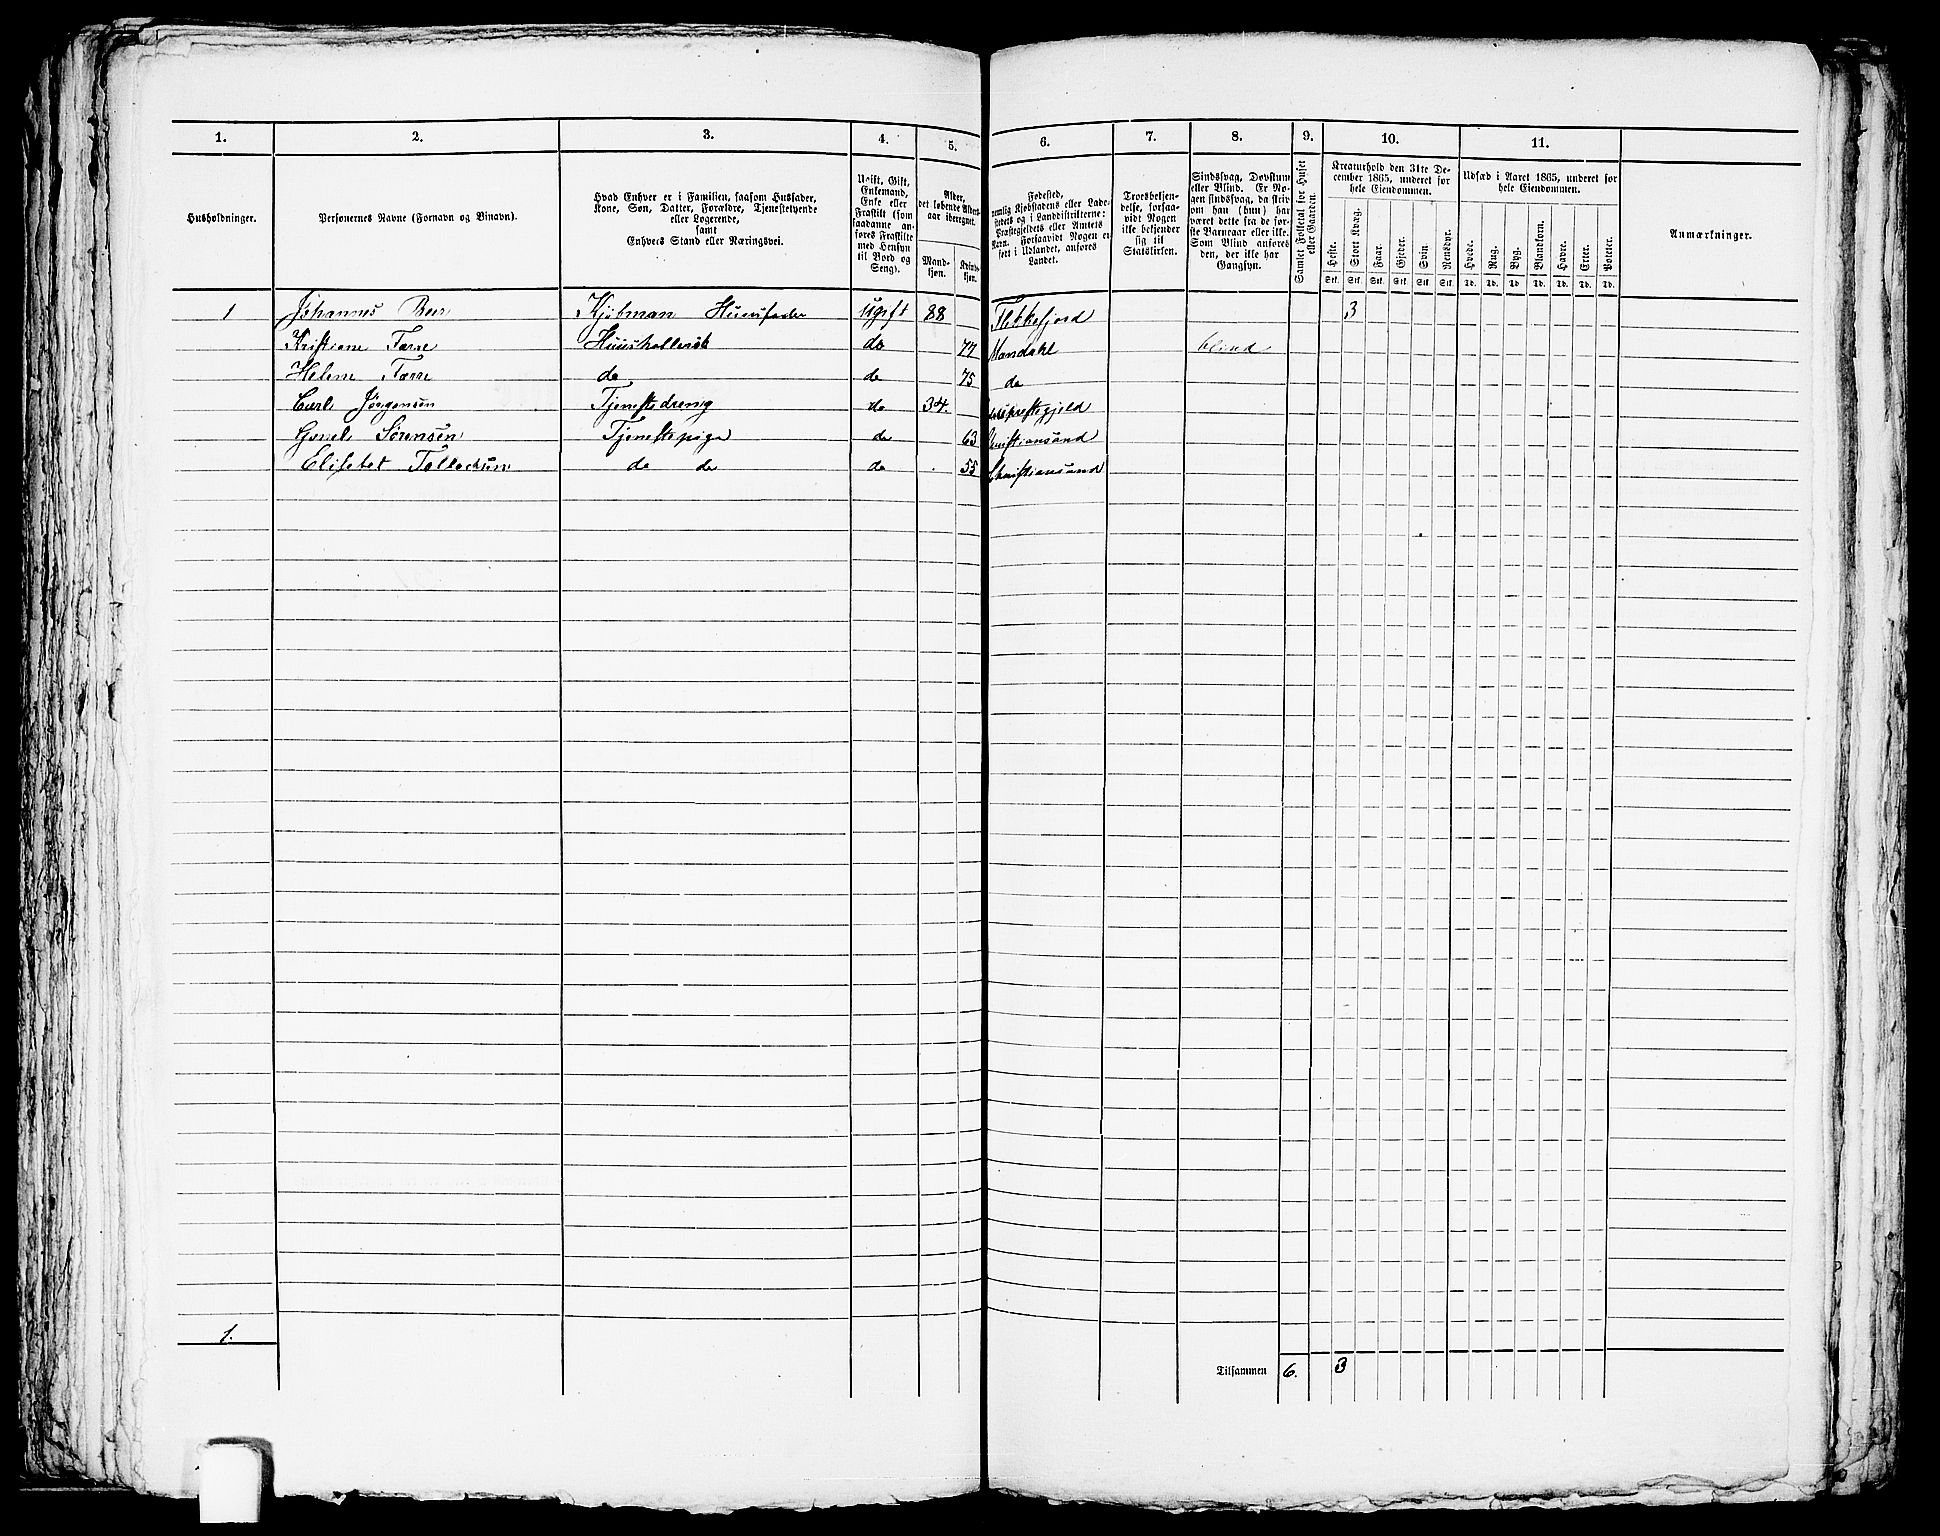 1. 2. 3. 4. 5. 6. 7. 8. 9. 10. 11.
Husholdninger.
Personernes Navne (Fornavn og Binavn).
Hvad Enhver er i Familien, saasom Husfader,
Kone, Søn, Datter, Forældre, Tjenestetyende
eller Logerende,
samt
Enhvers Stand eller Næringsvei.
Ugift, Gift,
Enkemand,
Enke eller
Fraskilt (som
saadanne an-
føres Fraskilte
med Hensyn
til Bord og
Seng).
Alder,
det løbende Alders-
aar iberegnet.
Mand-
kjøn.
Kvinde-
kjøn.
Fødested,
nemlig Kjøbstadens eller Lade-
stedets og i Landdistrikterne:
Præstegjeldets eller Amtets
Navn. Forsaavidt Nogen er
født i Udlandet, anføres
Landet.
Troesbekjen-
delse, forsaa-
vidt Nogen
ikke bekjender
sig til
Statskirken.
Sindssvag, Døvstum
eller Blind. Er No-
gen sindssvag, da skriv
om han (hun) har
været dette fra de før-
ste Barneaar eller ikke.
Som Blind anføres
den, der ikke har
Gangsyn.
Samlet Folketal for Huset
eller Gaarden.
Kreaturhold den 31te De-
cember 1865, underet for
hele Eiendommen.
Heste. Stort Kvæg. Faar. Gjeder. Svin. Rensdyr.
Stk. Stk. Stk. Stk. Stk. Stk.
Udsæd i Aaret 1865, underet for
hele Eiendommen.
Hvede. Rug. Byg. Blandkorn. Havre. Erter. Poteter.
Td. Td. Td. Td. Td. Td. Td.
Anmærkninger.
1 Johannes Beer Kjøbman Huusfader Ugift 88 Flekkefjord 3
Kristiane Tarre Huusholderske do 77 Mandahl blind
Helene Tarre do do 75 do
Carl Jørgensen Tjenestedreng do 34.
Sørensen Tjenestepige do 63 Christiansand
Elisabet Tellefsen do do do 55 Christiansand
1.
Tilsammen 6. 3